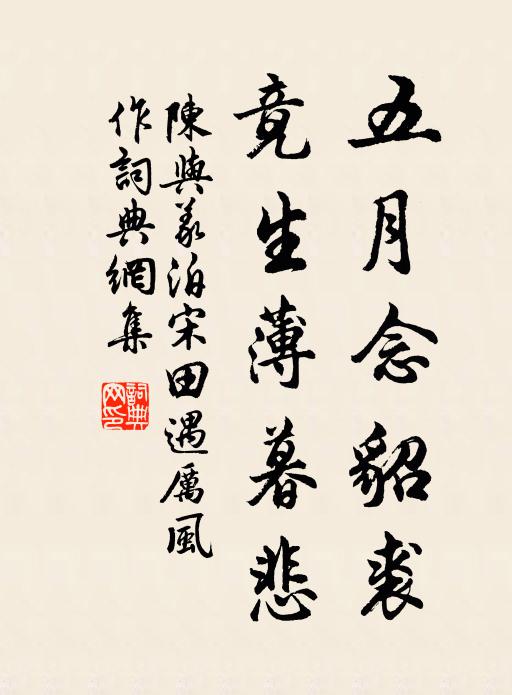 五月念貂裘
竟生薄暮悲
陳與義泊宋田遇厲風
作詞典網集
詞典網印